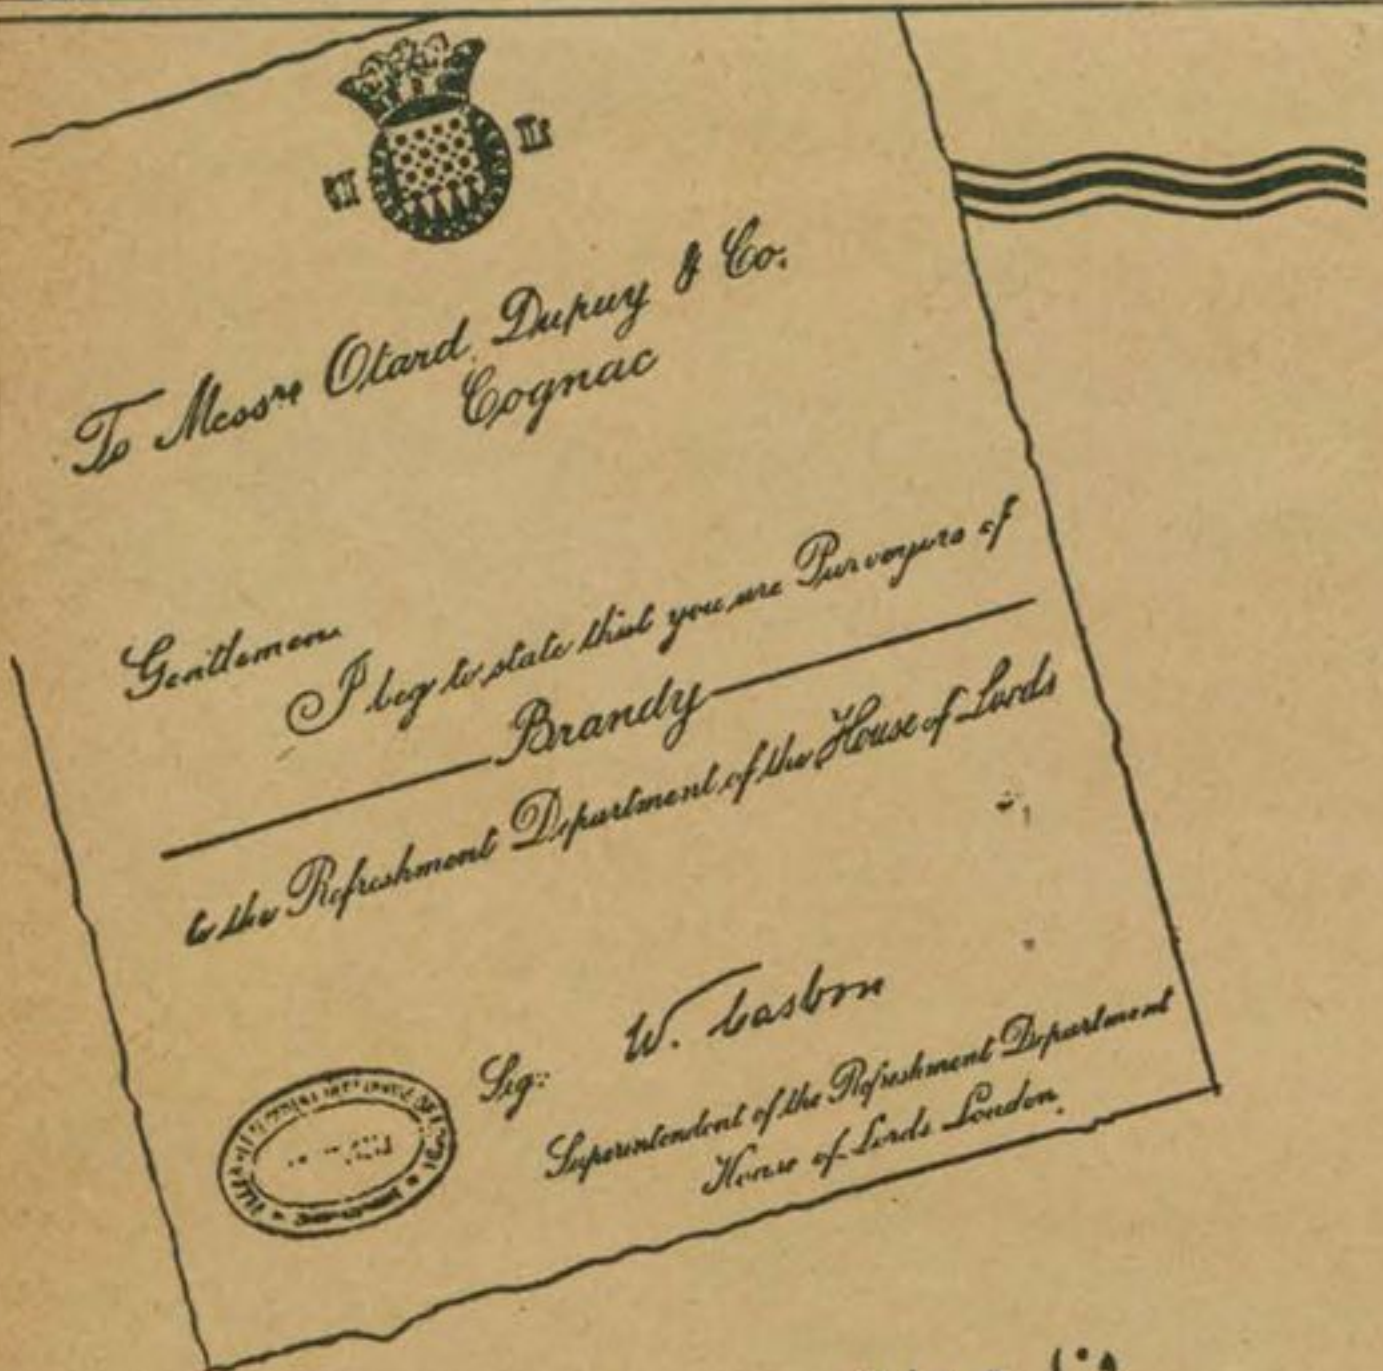 To Messrs Otard Dupuy & Co.
Cognac
Gentlemen
I beg to state that you are Purveyors of
Brandy
to the Refreshment Department of the House of Lords
Sig:
W.
Superintendent of the Refreshment Department
House of Lords London.